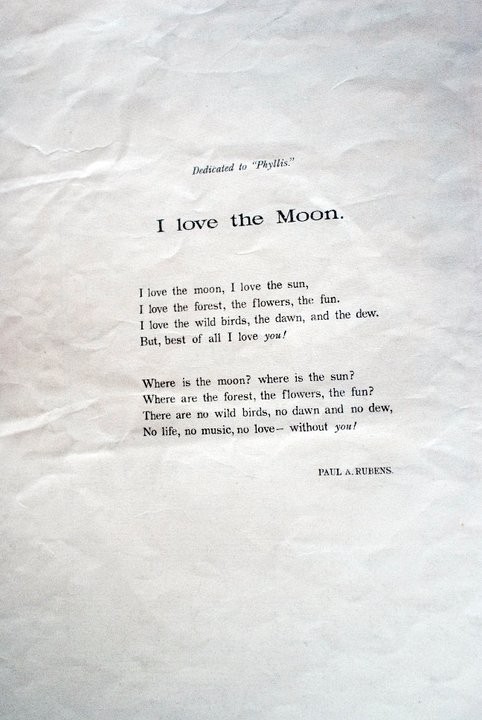 Dedicated to "Phyllis."
I love the Moon.
I love the moon, I love the sun,
I love the forest, the flowers, the fun.
I love the wild birds, the dawn, and the dew.
But, best of all I love you!
Where is the moon? where is the sun?
Where are the forest, the flowers, the fun?
There are no wild birds, no dawn and no dew,
No life, no music, no love— without you!
PAUL A. RUBENS.